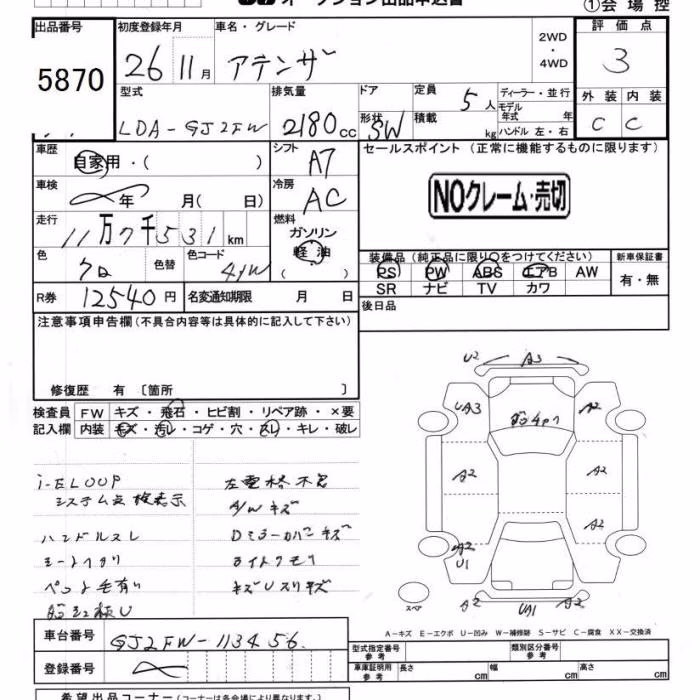 オークション出品申込書
①会場控
出品番号 初度登録年月 車名・グレード 2WD・4WD 評価点
5870 26 11月 アテンザ 3
型式 排気量 ドア 定員 5人 ディーラー・並行 外装 内装
LDA-GJ2FW 2180cc 形状 SW 積載 kg モデル年式 年 C C
ハンドル 左・右
車歴 自家用・( ) シフト A7 セールスポイント(正常に機能するものに限ります)
車検 年 月( 日) 冷房 AC NOクレーム・売切
走行 11万7千531km 燃料 ガソリン 軽油 ( )
色 クロ 色替 色コード 41W 装備品(純正品に限り○をつけてください) 新車保証書
PS PW ABS エアB AW 有・無
SR ナビ TV カワ
R券 12540円 名変通知期限 月 日 後日品
注意事項申告欄(不具合内容等は具体的に記入して下さい)
修復歴 有 〔箇所 〕
検査員記入欄 FW キズ・飛石・ヒビ割・リペア跡・×要
内装 キズ・汚レ・コゲ・穴・スレ・キレ・破レ
i-ELOOP
システム点検表示
ハンドルスレ
シートヘタリ
ペット毛有り
左電格不良
A/Wキズ
Dミラーカバーキズ
ライトクモリ
キズUスリキズ
U2 A3
UA3 A2
A2 A2
A2 A2
U1
A2 UA1 A2
スペア
A-キズ E-エクボ U-凹み W-補修跡 S-サビ C-腐食 XX-交換済
車台番号 GJ2FW-113456
登録番号
型式指定番号 参考 類別区分番号 参考
車庫証明用 参考 長さ cm 幅 cm 高さ cm
希望出品コーナー(コーナーは各会場により異なります。)